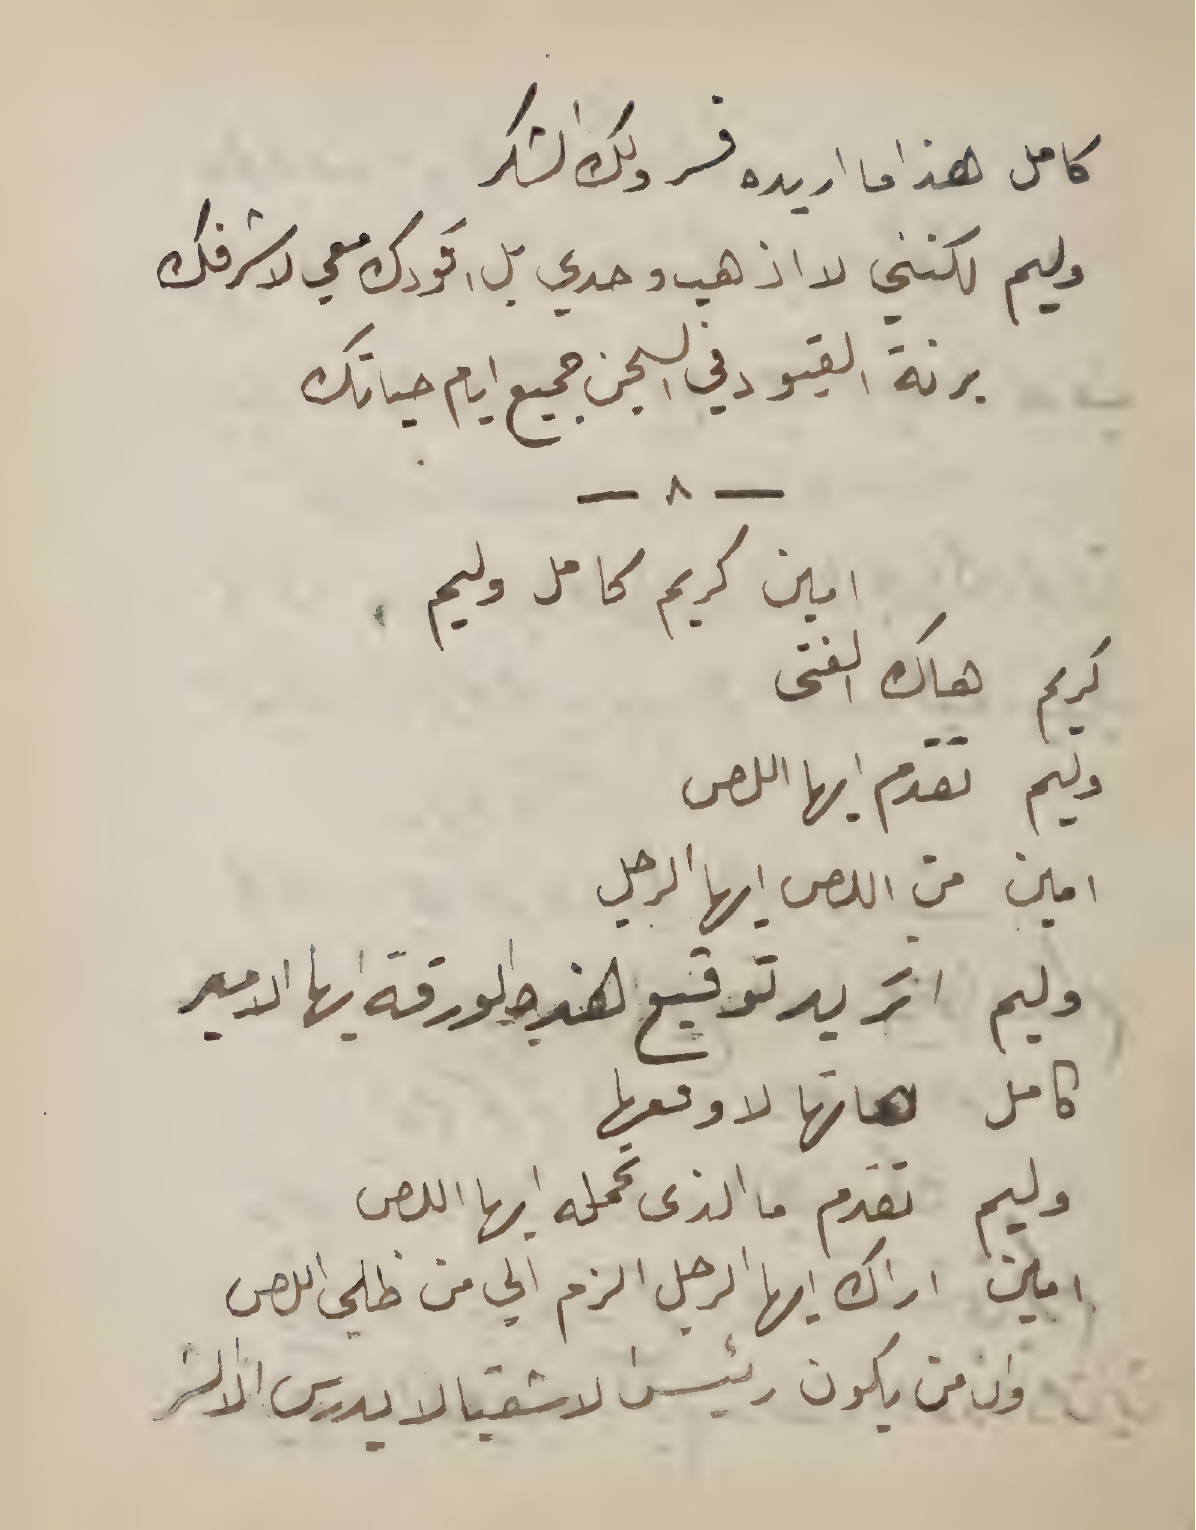 كامل هذا ما اريده فسر ولك الشكر
وليم لكنني لا اذهب وحدي بل اقودك معي لاشرفك
برنة القيود في السجن جميع ايام حياتك
— ٨ —
امين كريم كامل وليم
كريم هاك الفتى
وليم تقدم ايها اللص
امين من اللص ايها الرجل
وليم اتريد توقيع هذه الورقة ايها الامير
كامل هاتها لاوقعها
وليم تقدم ما الذى تحمله ايها اللص
امين اراك ايها الرجل الزم الي من ظلي اللص
وان من يكون رئيس الاشقيا لا يدرس الا الشر